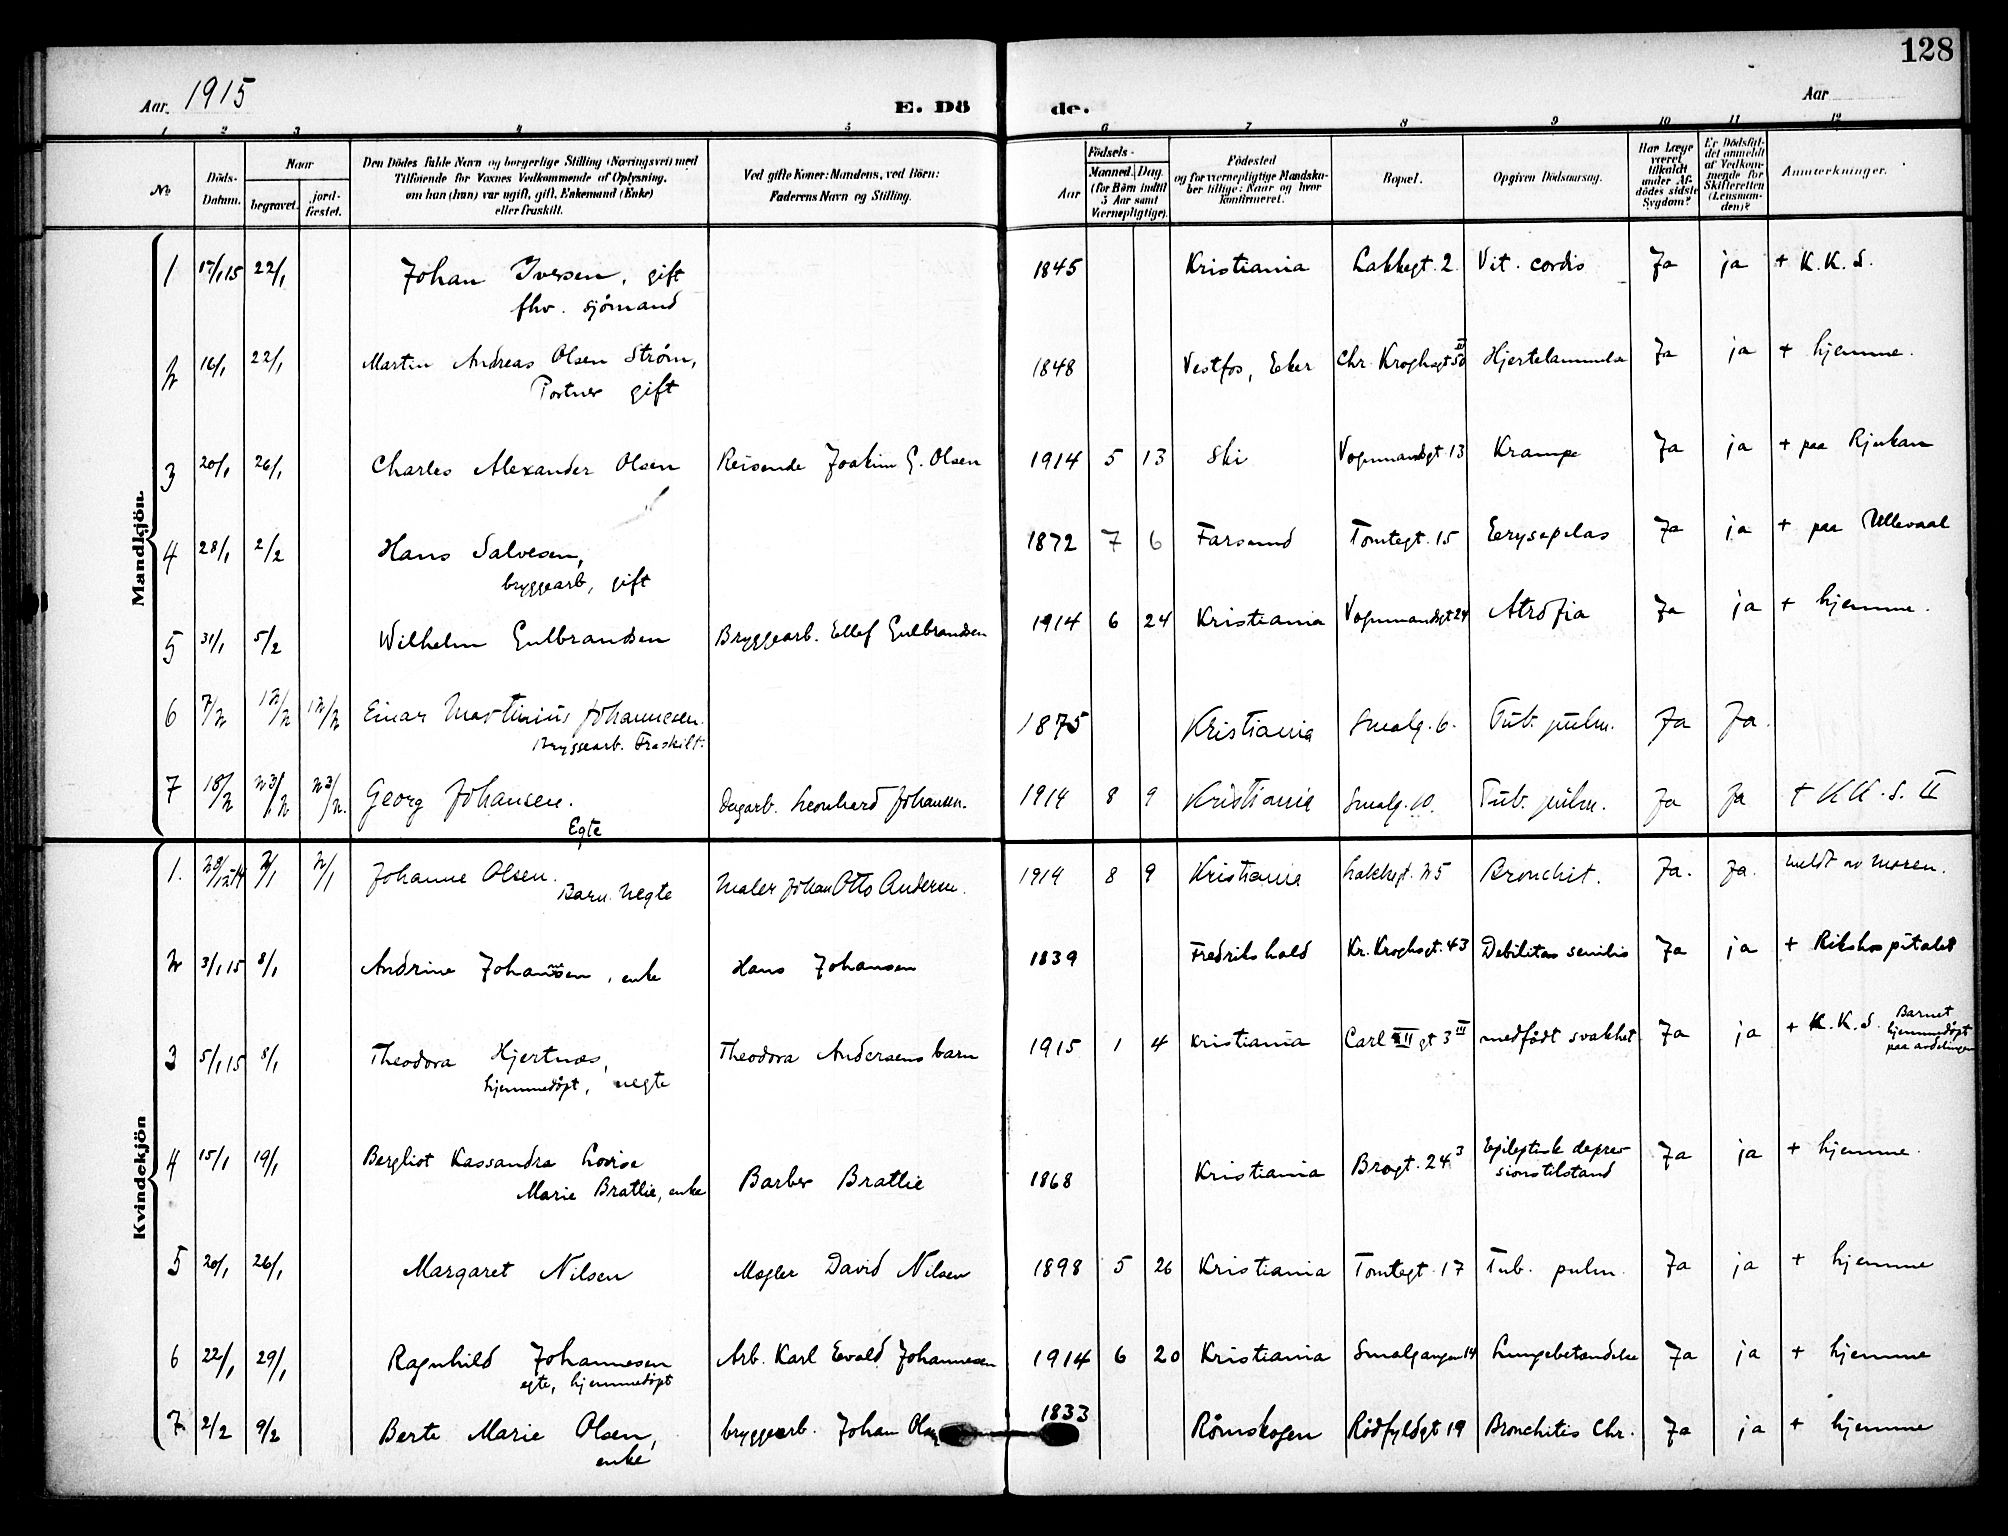 128
Aar. 1915
E. Dö de.
Aar
1 2 3 4 5 6 7 8 9 10 11 12
No
Döds-Datum.
Naar
begravet.
jord-fæstet.
Den Dödes fulde Navn og borgerlige Stilling (Næringsvei) med
Tilföiende for Voxnes Vedkommende af Oplysning,
om han (hun) var ugift, gift, Enkemand (Enke)
eller fraskilt.
Ved gifte Koner: Mandens, ved Börn:
Faderens Navn og Stilling.
Födsels-
Aar
Maaned. Dag.
(for Börn indtil
5 Aar samt
Værnepligtige).
Födested
og for værnepligtige Mandska-
ber tillige: Naar og hvor
konfirmeret.
Bopæl.
Opgiven Dödsaarsag.
Har Læge
været
tilkaldt
under Af-
dödes sidste
Sygdom?
Er Dödsfal-
det anmeldt
af Vedkom-
mende for
Skifteretten
(Lensman-
den)?
Anmærkninger.
Mandkjön.
1 17/1 15 22/1 Johan Iversen, gift 1845 Kristiania Lakkegt. 2 Vit. cordis Ja ja + K.K.S.
fhv. sjømand
2 16/1 22/1 Martin Andreas Olsen Strøm, 1848 Vestfos, Eker Chr. Kroghsgt 50 II Hjertelammelse Ja ja + hjemme.
Portner gift
3 20/1 26/1 Charles Alexander Olsen Reisende Joakim G. Olsen 1914 5 13 Ski Vognmandsgt. 13 Krampe Ja ja + paa Rjukan
4 28/1 2/2 Hans Salvesen, 1872 7 6 Farsund Tomtegt. 15 Eerysepelas Ja ja + paa Ullevaal
bryggearb, gift
5 31/1 5/2 Wilhelm Gulbrandsen Bryggearb. Ellef Gulbrandsen 1914 6 24 Kristiania Vognmandsgt 24 Atrofia Ja ja + hjemme.
6 7/2 12/2 12/2 Einar Martinius Johannesen. 1875 Kristiania Smalg. 6. Tub. pulm. Ja Ja.
Bryggearb. Fraskilt.
7 18/2 23/2 23/2. Georg Johansen. Dagarb. Leonhard Johansen. 1914 8 9 Kristiania Smalg. 10. Tub. pulm. Ja Ja + K K. S. II
Egte
Kvindekjön
1. 28/12 14 2/1 2/1 Johanne Olsen. Maler Johan Otto Andersen. 1914 8 9 Kristiania Lakkegt. 25 Bronchit. Ja. Ja. meldt av moren.
Barn uegte
2 3/1 15 8/1 Andrine Johannsen, enke Hans Johansen 1839 Fredrikshald Kr. Kroghsgt. 43 Debilitas senilis Ja ja + Rikshospitalet
3 5/1 15 8/1 Theodora Hjertnæs, Theodora Andersens barn 1915 1 4 Kristiania Carl XII gt 3 III medfødt svakhet Ja ja + K.K.S. Barnet
hjemmedøpt
paa avdelingen
hjemmedøpt, uegte
4 15/1 19/1 Bergliot Kassandra Lovise Barber Bratlie 1868 Kristiania Brogt. 24 3 Epileptisk depres- Ja ja + hjemme.
sionstilstand
Marie Bratlie, enke
5 20/1 26/1 Margaret Nilsen Mægler David Nilsen 1898 5 26 Kristiania Tomtegt. 17 Tub. pulm. Ja ja + hjemme
6 22/1 29/1 Ragnhild Johannesen Arb. Karl Evald Johannesen 1914 6 20 Kristiania Smalgangen 14 Lungebetændelse Ja ja + hjemme
egte, hjemmedøpt
7 2/2 9/2 Berte Marie Olsen, bryggearb. Johan 1833 Rømskogen Rødfyldgt 19 Bronchitis Chr. Ja ja + hjemme
enke